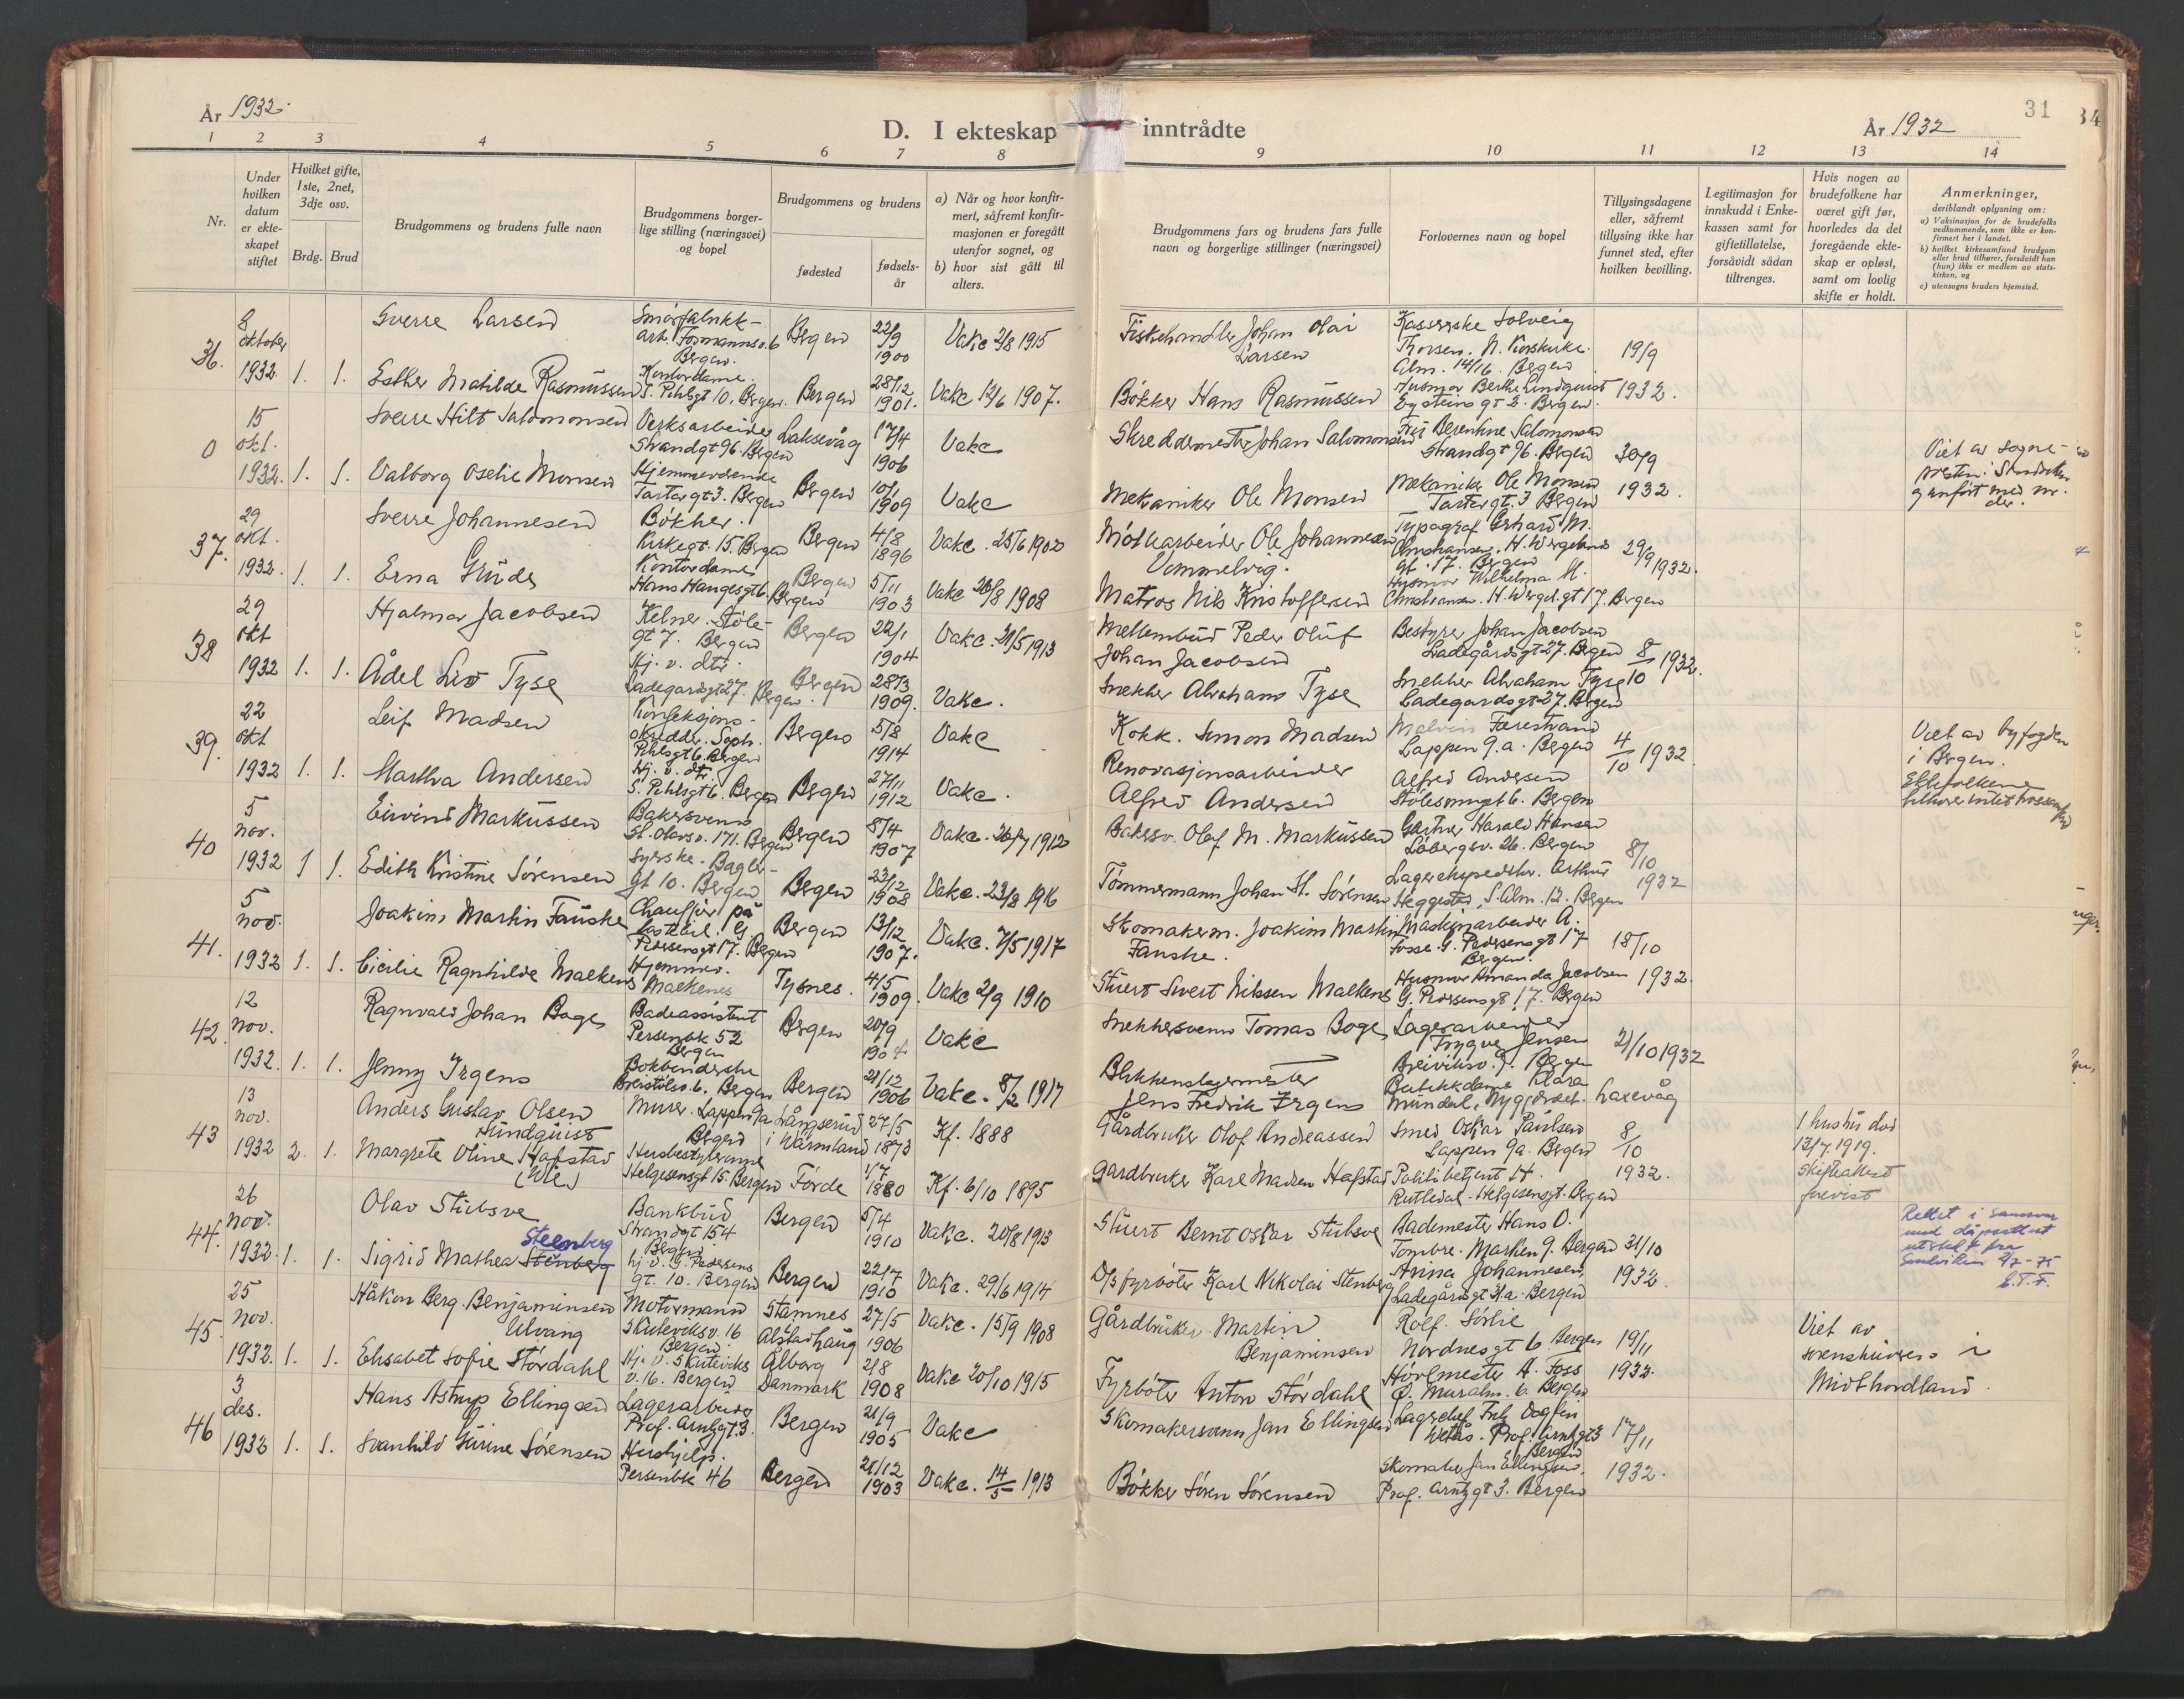 År 1932.
D. I ekteskap inntrådte
31
34
År 1932
1 2 3 4 5 6 7 8 9 10 11 12 13 14
Nr.
Under hvilken datum er ekteskapet stiftet
Hvilket gifte, 1ste, 2net, 3dje osv.
Brdg. Brud
Brudgommens og brudens fulle navn
Brudgommens borgerlige stilling (næringsvei) og bopel
Brudgommens og brudens
fødested
fødselsår
a) Når og hvor konfirmert, såfremt konfirmasjonen er foregått utenfor sognet, og
b) hvor sist gått til alters.
Brudgommens fars og brudens fars fulle navn og borgerlige stillinger (næringsvei)
Forlovernes navn og bopel
Tillysingsdagene eller, såfremt tillysing ikke har funnet sted, efter hvilken bevilling.
Legitimasjon for innskudd i Enkekassen samt for giftetillatelse, forsåvidt sådan tiltrenges.
Hvis nogen av brudefolkene har været gift før, hvorledes da det foregående ekteskap er opløst, samt om lovlig skifte er holdt.
Anmerkninger, deriblandt oplysning om:
a) Vaksinasjon for de brudefolks vedkommende, som ikke er konfirmert her i landet.
b) hvilket kirkesamfund brudgom eller brud tilhører, forsåvidt han (hun) ikke er medlem av statskirken, og
c) utensogns bruders hjemsted.
36. 8 oktober 1932. 1. 1.
Sverre Larsen
Smørfabrikk-arb. Formannsv. 6 Bergen.
Bergen 22/9 1900 Vakc 2/8 1915
Fiskehandler Johan Olai Larsen
Kassererske Solveig Thorsen. N. Korskirke. Alm. 14/16. Bergen
19/9 1932.
Esther Matilde Rasmussen
Kontordame. S. Pihlsgt 10. Bergen.
Bergen 28/12 1901. Vakc 12/6 1907.
Bøkker Hans Rasmussen
Husmor Berthe Lindquist Eysteinsgt 2. Bergen.
0 15 okt. 1932. 1. 1.
Sverre Hilt Salomonsen
Verksarbeider Strandgt 96. Bergen
Laksevåg 17/4 1906 Vakc
Skreddermester Johan Salomonsen
Strandgt 96. Bergen
30/9 1932.
Viet av sogne-
Valborg Oselie Monsen
Hjemmeværende Tartargt 3. Bergen
Bergen 10/1 1909 Vakc
Mekaniker Ole Monsen
Mekaniker Ole Monsen Tartargt. 3 Bergen
37. 29 okt. 1932. 1. 1.
Sverre Johannesen
Bøkker. Kirkegt. 15. Bergen
Bergen 4/8 1896 Vakc. 25/6 1902
Ole Johannesen Vemmelvig.
Typograf Gerhard M. Christiansen. H. Wergelands gt. 17. Bergen
29/9 1932.
Erna Grude
Kontordame Hans Haugesgt 6. Bergen
Bergen 5/11 1903 Vakc 26/8 1908
Matros Nils Kristoffersen
Husmor Wilhelma M. Christiansen. H. Wergel. gt 17. Bergen
38 29 okt 1932 1. 1.
Hjalmar Jacobsen
Kelner. Støle-gt 7. Bergen
Bergen 22/1 1904 Vakc. 21/5 1913
Mellembud Peder Oluf Johan Jacobsen
Bestyrer Johan Jacobsen Ladegårdsgt 27. Bergen
8/10 1932.
Ådel Liv Tyse
Hj. v. dtr. Ladegardsgt 27. Bergen.
Bergen 28/3 1909. Vakc.
Snekker Abraham Tyse
Snekker Abraham Tyse Ladegardsgt 27. Bergen
39. 22 okt 1932 1. 1.
Leif Madsen
Konfeksjons-skredder. Soph. Pihlsgt 6. Bergen
Bergen 5/8 1914 Vakc
Kokk. Simon Madsen
Malvin Færestrand Lappen 9.a. Bergen
4/10 1932
Viet av byfogden i Bergen.
Martha Andersen
Hj. v. dtr. S. Pihlsgt 6. Bergen
Bergen 27/11 1912 Vakc.
Renovasjonsarbeider Alfred Andersen
Alfred Andersen Stølesmugt 6. Bergen
40 5 nov. 1932 1 1.
Eivind Markussen
Bakersvenn St. Olavsv. 171. Bergen
Bergen 8/4 1907 Vakc. 26/7 1912
Bakersv. Olaf M. Markussen
Gartner Harald Hansen Løbergsv. 26. Bergen
8/10 1932
Edith Kristine Sørensen
Syerske. Bagler-gt 10. Bergen
Bergen 23/12 1908 Vakc. 23/8 1916
Tømmermann Johan H. Sørensen
Lagerekspeditør. Arthur Heggestad, S. Alm. 12. Bergen
41. 5 nov. 1932 1. 1.
Joakim Martin Fauske
Chauffør på lastebil. G. Pedersensgt 17. Bergen
Bergen 13/12 1907. Vakc. 7/5 1917
Skomakerm. Joakim Martin Fauske.
Maskinarbeider A. Fosse. G. Pedersensgt 17 Bergen.
18/10 1932.
Cicilie Ragnhilde Malkenes
Hjemmev. Malkenes
Tysnes. 4/5 1909. Vakc 2/9 1910
Stuert Sivert Nilssen Malkenes
Husmor Amanda Jacobsen G. Pedersensgt 17. Bergen
42. 12 nov. 1932. 1. 1.
Ragnvald Johan Boge
Badeassistent Persenbk 52 Bergen
Bergen 20/9 1904 Vakc
Snekkersvenn Tomas Boge
Lagerarbeider Trygve Jensen Breiviksv. 9. Bergen
21/10 1932
Jenny Irgens
Bokbinderske Breistølsv. 6. Bergen
Bergen 21/12 1906 Vakc. 8/2 1917
Blikkenslagermester Jens Fredrik Irgens
Butikkdame Klara Mundal, Nygårdset. Laxevåg
43 13 nov. 1932 2. 1.
Anders Gustav Olsen Sundquist
Murer. Lappen 9a Bergen
Långserud i Wärmland 27/5 1873 Kf. 1888
Gårdbruker Olof Andreassen
Smed Oskar Paulsen Lappen 9a. Bergen
8/10 1932.
1 hustru død 13/7 1919. Skifteattest forevist
Margrete Oline Hafstad (Ule)
Husbestyrerinne Helgesensgt 15. Bergen
Førde 1/7 1880 Kf. 6/10 1895
Gardbruker Karl Madsen Hafstad
Politibetjent H. Rutledal. Helgesensgt. Bergen
44. 26 nov. 1932. 1. 1.
Olav Stubsve
Bankbud Strandgt 154 Bergen
Bergen 5/4 1910 Vakc. 20/8 1913
Stuert Bernt Oskar Stubsve
Bademester Hans O. Tombre. Marken 9. Bergen
31/10 1932.
Rettet i samsvar med dåpsattest utstedt fra Sandviken 2/7-75 E.T.F.
Steenberg
Sigrid Mathea Stenberg
hj. v. G. Pedersens gt. 10. Bergen
Bergen 22/7 1910 Vakc. 29/6 1914
D/s fyrbøter Karl Nikolai Stenberg
Anna Johannesen, Ladegårdsgt 31.a. Bergen
45. 25 nov. 1932. 1. 1.
Håkon Berg. Benjaminsen Ulvang
Motormann Skuteviksv. 16 Bergen.
Stamnes Alstadhaug 27/5 1906 Vakc. 15/9 1908
Gårdbruker Martin Benjaminsen
Rolf. Sørlie Nordnesgt 6. Bergen
19/11 1932.
Viet av sorenskriveren i Midthordland.
Elisabet Sofie Stördahl
Hj. v. Skuteviks v. 16. Bergen
Ålborg Danmark 2/8 1908 Vakc 20/10 1915
Fyrbøter Anton Stördahl
Høvlmester A. Foss Ø. Muralm. 6. Bergen
46 3 des. 1932 1. 1.
Hans Astrup Ellingsen
Lagerarbeider Prof. Arntzgt. 3.
Bergen 21/9 1905 Vakc
Skomakersvenn Jan Ellingsen
Lagerchef Dagfin Prof. Arntzgt 3 Bergen
17/11 1932.
Svanhild Gurine Sørensen
Hushjelp. Persenbk 46
Bergen 21/12 1903 Vakc. 14/5 1913
Bøkker Søren Sørensen
Skomaker Jan Ellingsen, Prof. Arntzgt 3. Bergen